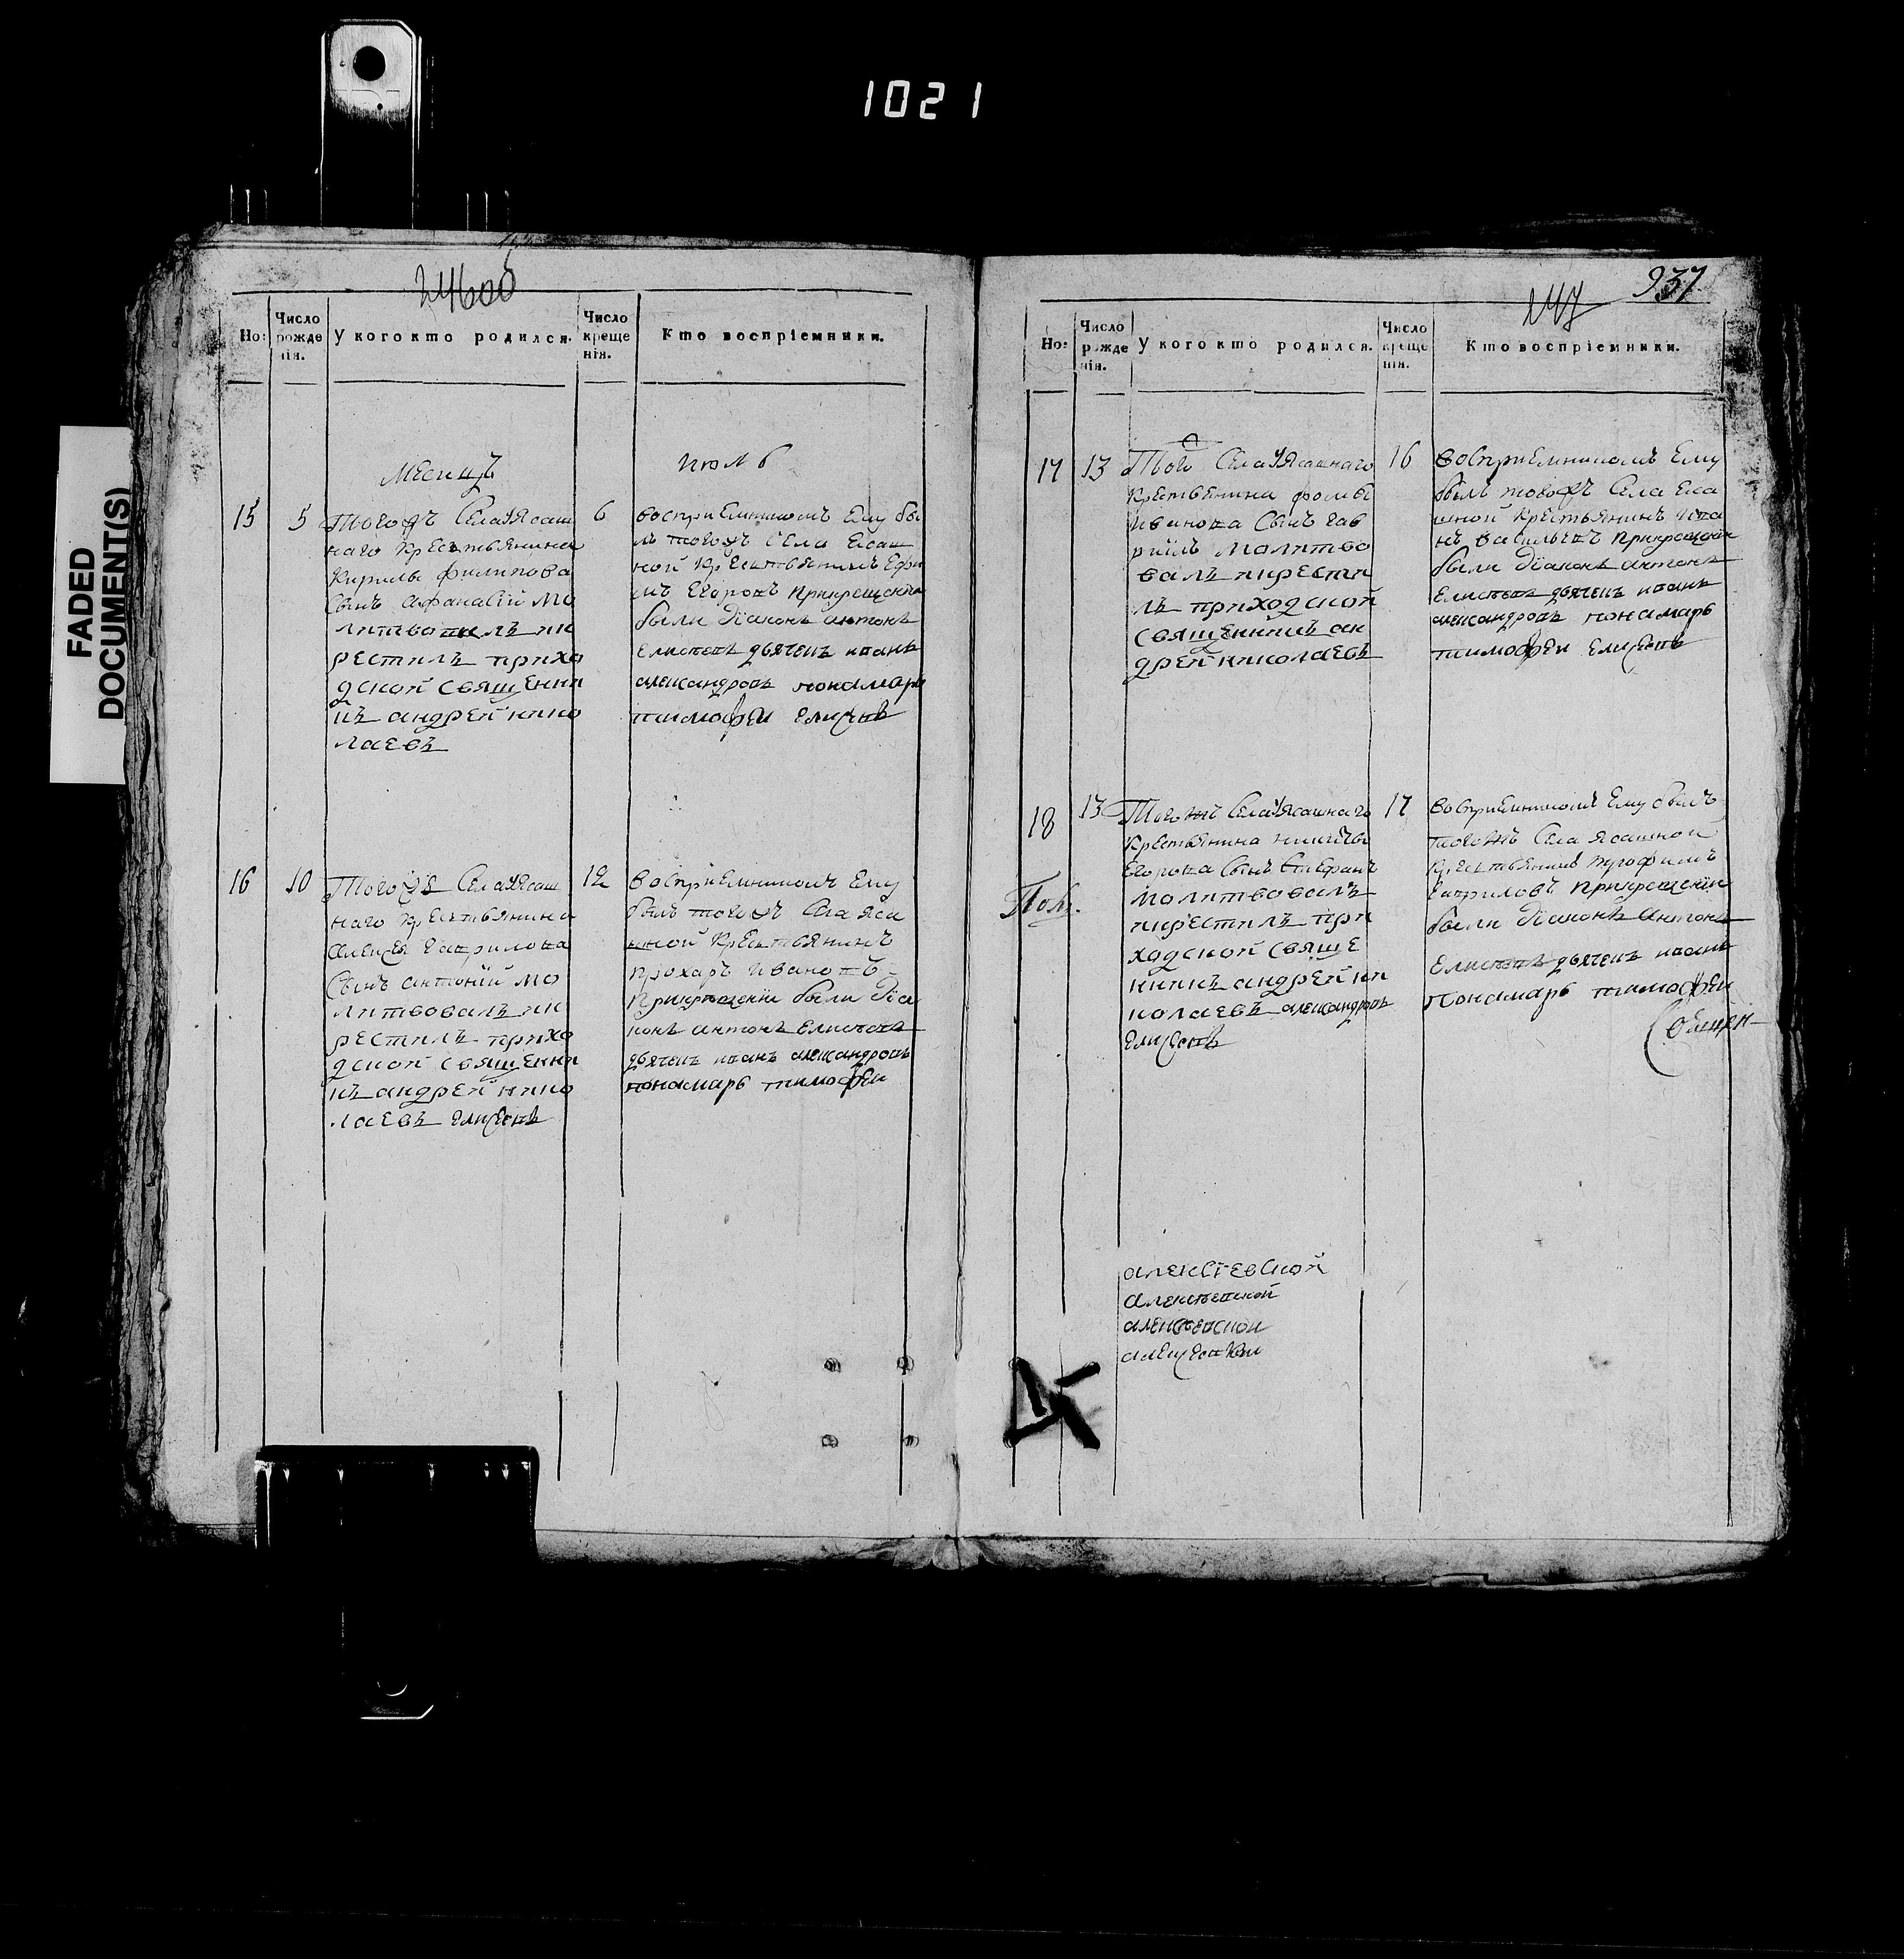 1021
FADED
DOCUMENT(S)
Но:
Число рожде нія.
У кого кто родился.
Число креще нія.
Кто воспріемники.
Месицъ
15
5
Тогожъ Села Уясаш
наго Крестьянина
Кирилы филипова
Сынъ афанасїй мо
литвовалъ ик
рестилъ прихо
дской священни
къ андрей нико
лаевъ
июль
6
восприемникомъ Ему бы
лъ тогожъ Села Ясаш
ной Крестьянинъ Ефи
мъ Егоровъ Прикрещении
были дїаконъ антонъ
Елисеевъ дьячекъ иванъ
александровъ пономарь
тимофеи Елисеевъ
16
10
Тогожъ Села Уясаш
наго Крестьянина
алексея Гаврилова
Сынъ антонїй мо
литвовалъ ик
рестилъ прихо
дской священни
къ андрей нико
лаевъ Елисеевъ
12
Восприемникомъ Ему
былъ тогожъ Села яса
шной Крестьянинъ
прохаръ Ивановъ
Прикрещенїи были дїа
конъ антонъ Елисеевъ
дьячекъ иванъ александровъ
понамарь тимофеи
937
147
Но:
Число рожде нія.
У кого кто родился.
Число креще нія.
Кто воспріемники.
17
13
Той Села Уясашнаго
Крестьянина фомы
Иванова Сынъ Гав
риилъ молитво
валъ икрести
лъ приходской
священникъ ан
дрей николаевъ
16
Восприемникомъ Ему
былъ тогожъ Села Яса
шной Крестьянинъ Ива
нъ Васильевъ Прикрещении
были дїаконъ антонъ
Елисеевъ дьячекъ иванъ
александровъ понамарь
тимофеи Елисеевъ
18
13
Тогожъ Села Уясашнаго
Крестьянина никиты
Егорова Сынъ Стефанъ
молитвовалъ
икрестилъ при
ходской свяще
никъ андрей ни
колаевъ александровъ
Елисеевъ
17
Восприемникомъ Ему былъ
тогожъ Села Ясашной
Крестьянинъ трофимъ
Гавриловъ Прикрещенїи
были дїаконъ Антонъ
Елисеевъ дьячекъ иванъ
Понамарь тимофеи
алексѣевской
алексѣевской
алексѣевской